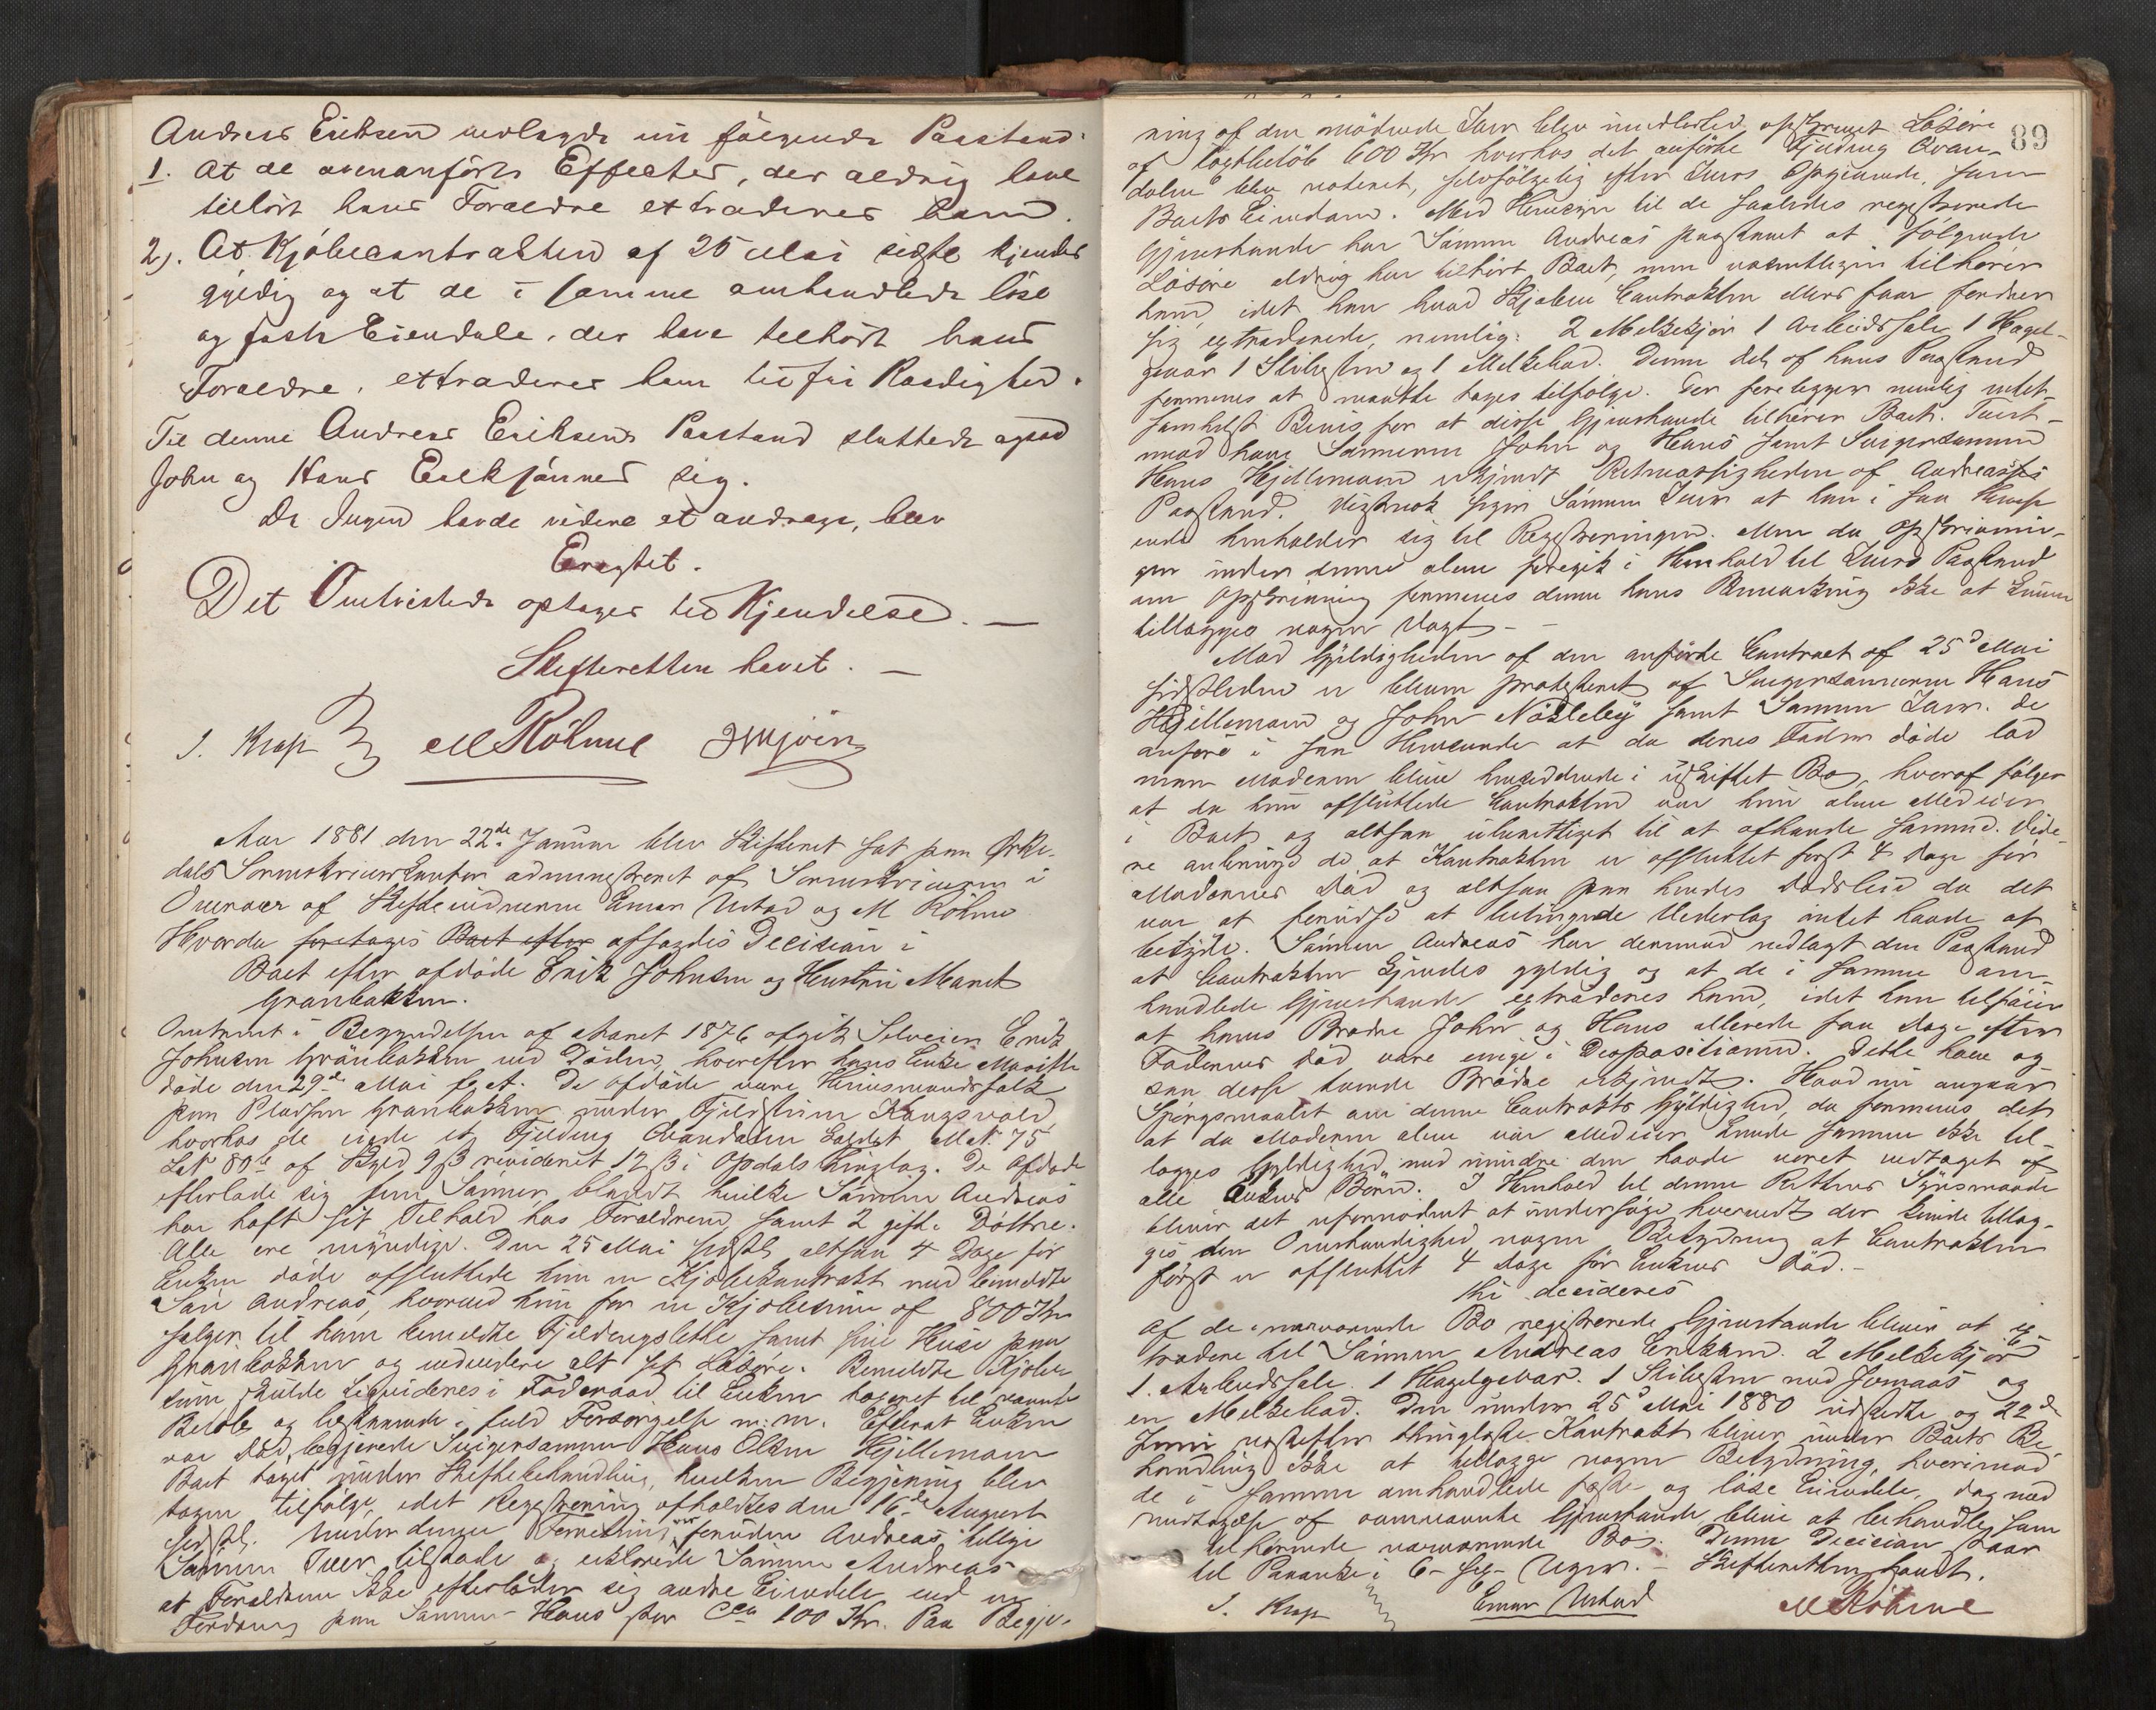 Andreas Eriksen nedlagde nu følgende Paastand:
1. At de ovenanførte Effecter, der aldrig have
tilhørt hans Forældre extraderes ham.
2). At Kjøbecontrakten af 25 Mai sidstl kjendes
gyldig og at de i samme omhandlede løse
og faste Eiendele, der have tilhørt hans
Forældre, extraderes ham til fri Raadighed.
Til denne Andreas Eriksens Paastand sluttede ogsaa
John og Hans Erikssønner sig.
Da Ingen havde videre at andrage, blev
Eragtet.
Det Omtvistede optages til Kjendelse. —
Skifteretten hævet. —
J. Krag M Röhme
Aar 1881 den 22de Januar blev Skifteret sat paa Orke-
dals Sorenskriverkontor administreret af Sorenskriveren i
Overvær af Skiftevidnerne Einar Ustad og M Röhme
Hvorda foretages Boet efter afsagdes Decision i
Boet efter afdøde Erik Johnsen og Hustru Marit
Granbakken.
Omtrent i Begyndelsen af Aaret 1876 afgik Selveier Erik
Johnsen Granbakken ved Døden, hvorefter hans Enke Marit
døde den 29de Mai f. A. De afdøde vare Huusmandsfolk
paa Pladsen Granbakken under Fjeldstuen Kongsvold,
hvorhos de eiede et Fjelding Aavandalen kaldet M.N. 75
L.N. 80 af Skyld 9 ß revideret 12 ß i Opdals Thinglag. De Afdøde
efterlode sig fem Sønner, blandt hvilke Sønnen Andreas
har haft sit Tilhold hos Forældrene, samt 2 gifte Døttre.
Alle ere myndige. Den 25 Mai sidstl altsaa 4 Dage før
Enken døde afsluttede hun en Kjøbekontrakt med bemeldte
Søn Andreas, hvorved hun for en Kjøbesum af 800 Kr
sælger til ham bemeldte Fjeldengslette samt sine Huse paa
Granbakken og endvidere alt sit Løsøre. Bemeldte Kjøbe-
sum skulde liqvideres i Føderaad til Enken taxeret til nævnte
Beløb og bestaaende i fuld Forsørgelse m. m. Efterat Enken
var død, begjærede Svigersønnen Hans Olsen Hjellemoen
Boet taget under Skiftebehandling, hvilken Begjæring blev
tagen tilfølge, idet Registrering afholdtes den 16de August
sidstl. Under denne Forretning var foruden Andreas tillige
Sønnen Iver tilstede og erklærede Sønnen Andreas
at Forældrene ikke efterlader sig andre Eiendele end en
Fordring paa Sønnen Hans stor cca 100 Kr. Paa Begjæ-
89
ring af den mødende Iver blev imidlertid opskrevet Løsøre
af Taxtbeløb 600 Kr hvorhos det anførte Fjeldeng Aavan-
dalen blev noteret, selvfølgelig efter Ivers Opgivende, som
Boets Eiendom. Med Hensyn til de saaledes registrerede
Gjenstande har Sønnen Andreas paastaaet at følgende
Løsøre aldrig har tilhørt Boet, men uomtvistelig tilhører
ham, idet han hvad Kjøbe Contrakten ellers faar fordrer
sig extraderede, nemlig: 2 Melkekjør 1 Arbeidssele 1 Hagel-
gevær 1 Slibesten og 1 Melkebod. Denne del af hans Paastand
formenes at maatte tages tilfølge. Der forelegger nemlig intet-
somhelst Beviis for at disse Gjenstande tilhører Boet. Tvert-
mod have Sønnerne John og Hans samt Svigersønnen
Hans Hjellemoen erkjendt Retmæssigheden af Andreas's
Paastand. Vistnok siger Sønnen Iver at han i saa Hense-
ende henholder sig til Registreringen. Men da Opskrivnin-
gen under denne alene foregik i Henhold til Ivers Paastand
om Opskrivning formenes denne hans Bemærkning ikke at kunne
tillægges nogen Vægt —
Mod Gyldigheden af den anførte Contract af 25d Mai
sidstleden er bleven protesteret af Svigersønnerne Hans
Hjellemoen og John Nøsleby samt Sønnen Iver. De
anføre i saa Henseende at da deres Fader døde lod
man Moderen blive hensiddende i uskiftet Bo, hvoraf følger
at da hun afsluttede Contrakten var hun alene Medeier
i Boet og altsaa uberettiget til at afhænde samme. Vide-
re anbringe de at Kontrakten er afsluttet først 4 Dage før
Moderens Død og altsaa paa hendes Dødsleie da det
var at forudse at betingede Vederlag intet havde at
betyde. Sønnen Andreas har dermod nedlagt den Paastand
at Contrakten kjendes gyldig og at de i samme om-
handlede Gjenstande extraderes ham, idet han tilføier
at hans Brødre John og Hans allerede faa Dage efter
Faderens Død vare enige i Dispositionen. Dette have og-
saa disse tvende Brødre erkjendt. Hvad nu angaar
Spørgsmaalet om denne Contrakts Gyldighed, da formenes det
at da Moderen alene var Medeier kunde samme ikke til-
lægges Gyldighed med mindre den havde været vedtaget af
alle Enkens Børn. I Henhold til denne Rettens Synsmaade
bliver det ufornødent at undersøge hvorvidt der kunde tillæg-
ges den Omstændighed nogen Betydning at Contrakten
først er afsluttet 4 Dage før Enkens Død. —
Thi decideres
Af de i nærværende Bo registrerede Gjenstande bliver at ex-
tradere til Sønnen Andreas Eriksen. 2 Melkekjør
1. Arbeidssele. 1 Hagelgevær. 1 Slibesten med Jernaas og
en Melkebod. Den under 25d Mai 1880 udstedte og 22de
Juni næstefter thinglæste Kontrakt bliver under Boets Be-
handling ikke at tillægge nogen Betydning, hvorimod
de i samme omhandlede faste og løse Eiendele, dog med
Undtagelse af ovennævnte Gjenstande blive at behandle som
tilhørende nærværende Bo. Denne Decision staar
til Paaanke i 6 – sex – Uger. – Skifteretten hævet.
J. Krag Einar Ustad M Röhme